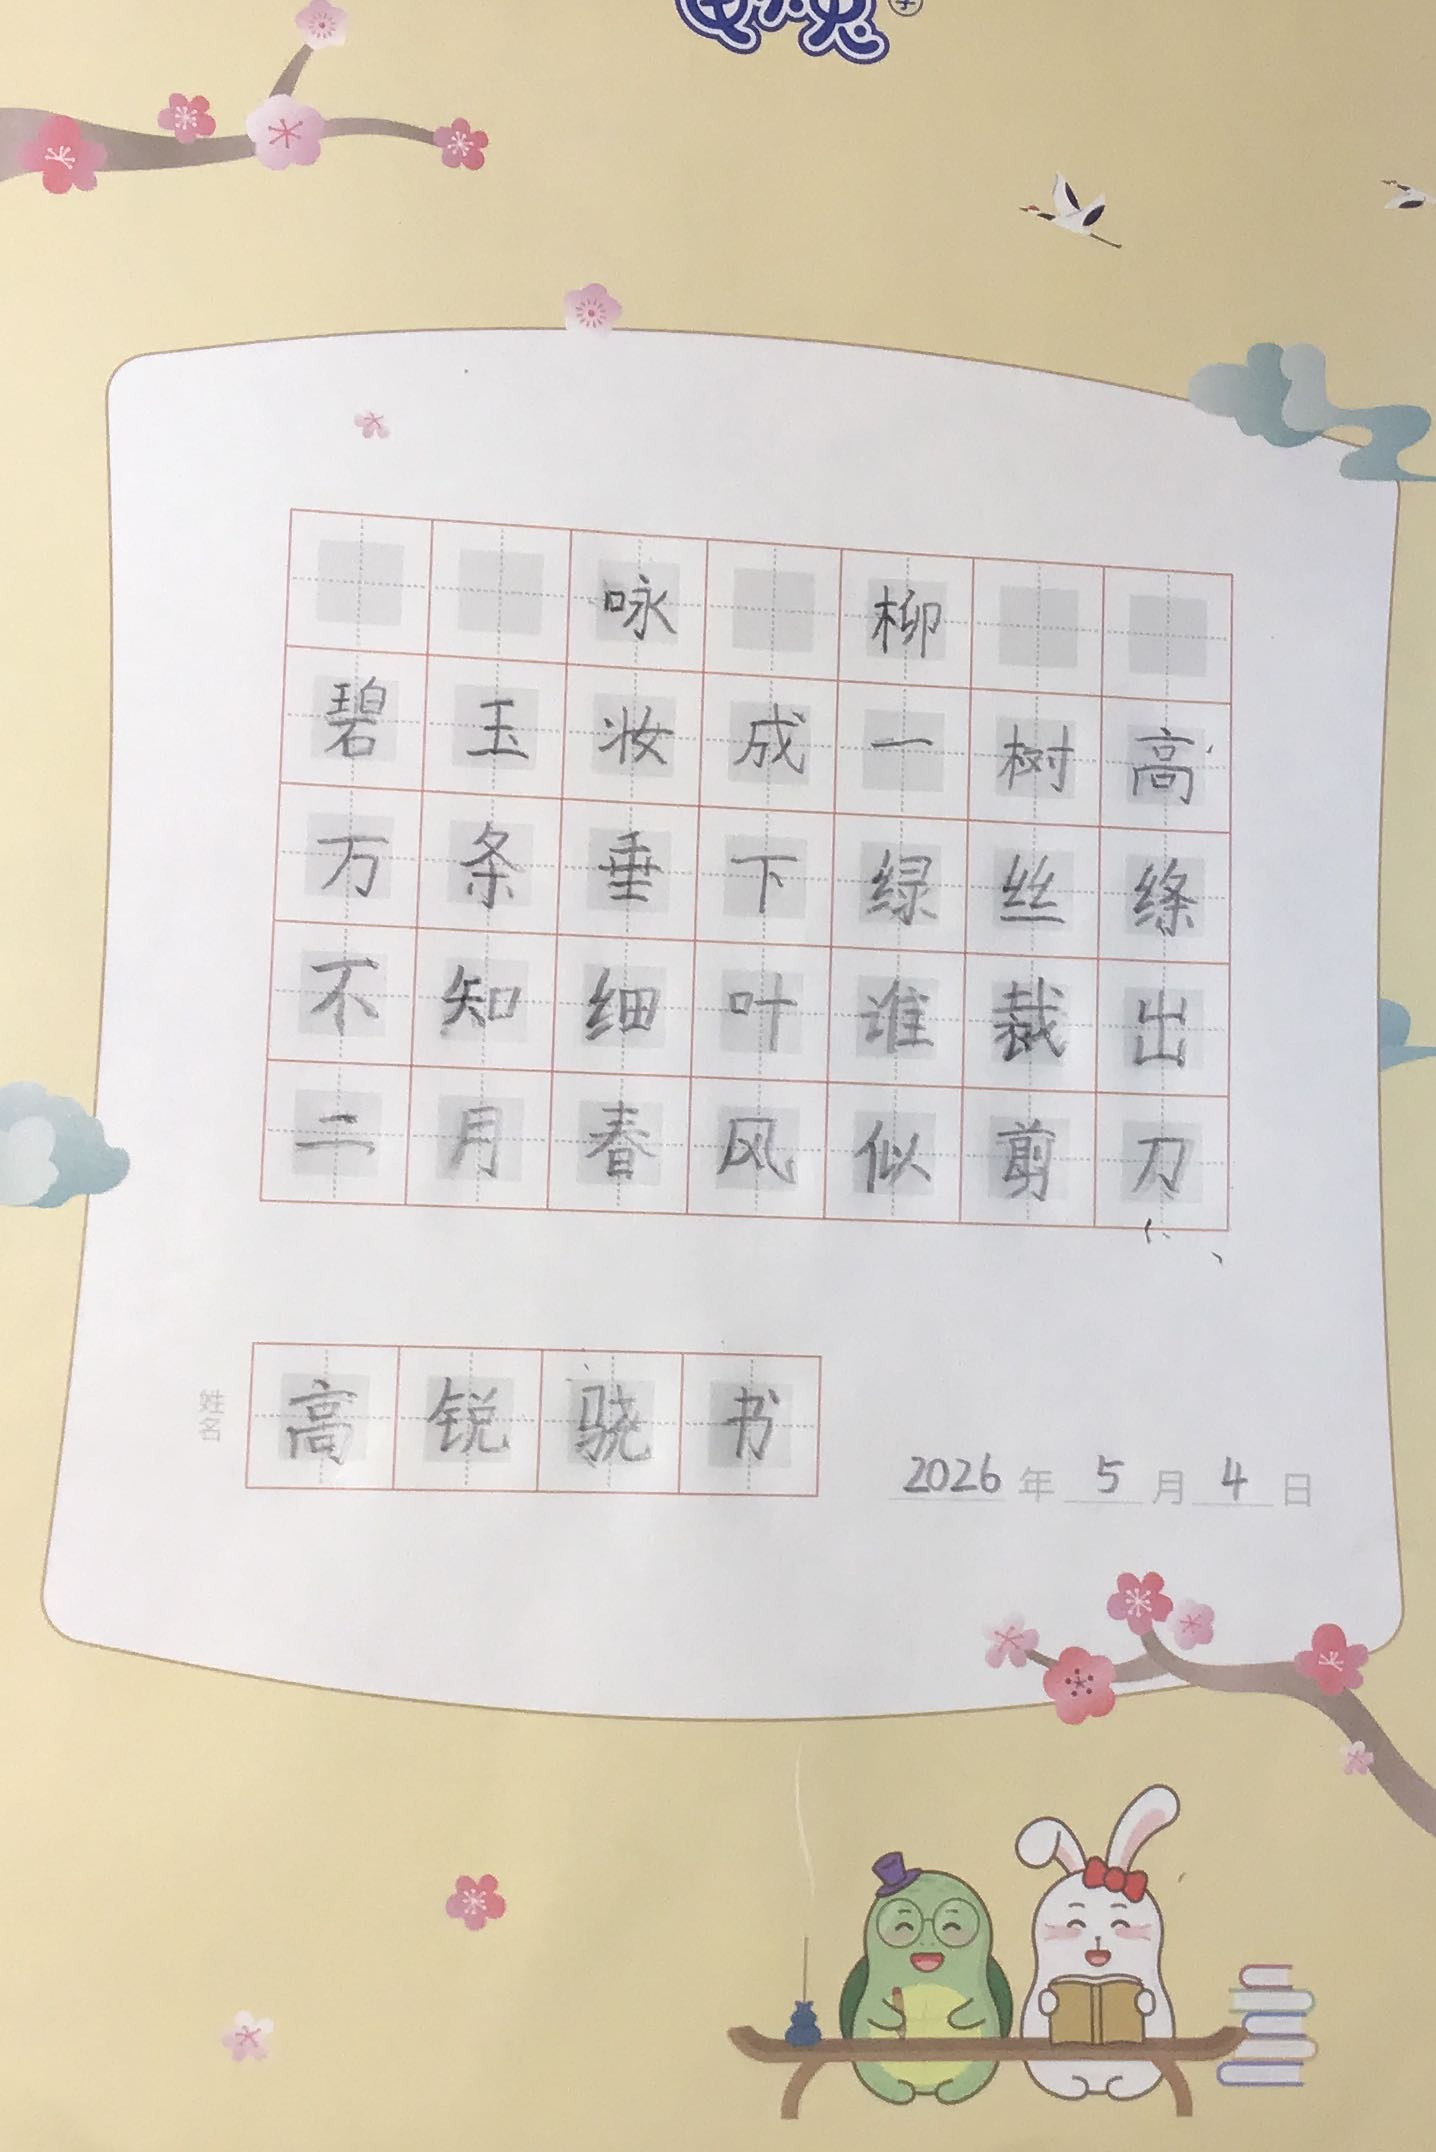 咏柳
碧玉妆成一树高
万条垂下绿丝绦
不知细叶谁裁出
二月春风似剪刀
姓名 高锐骁书
2026年5月4日